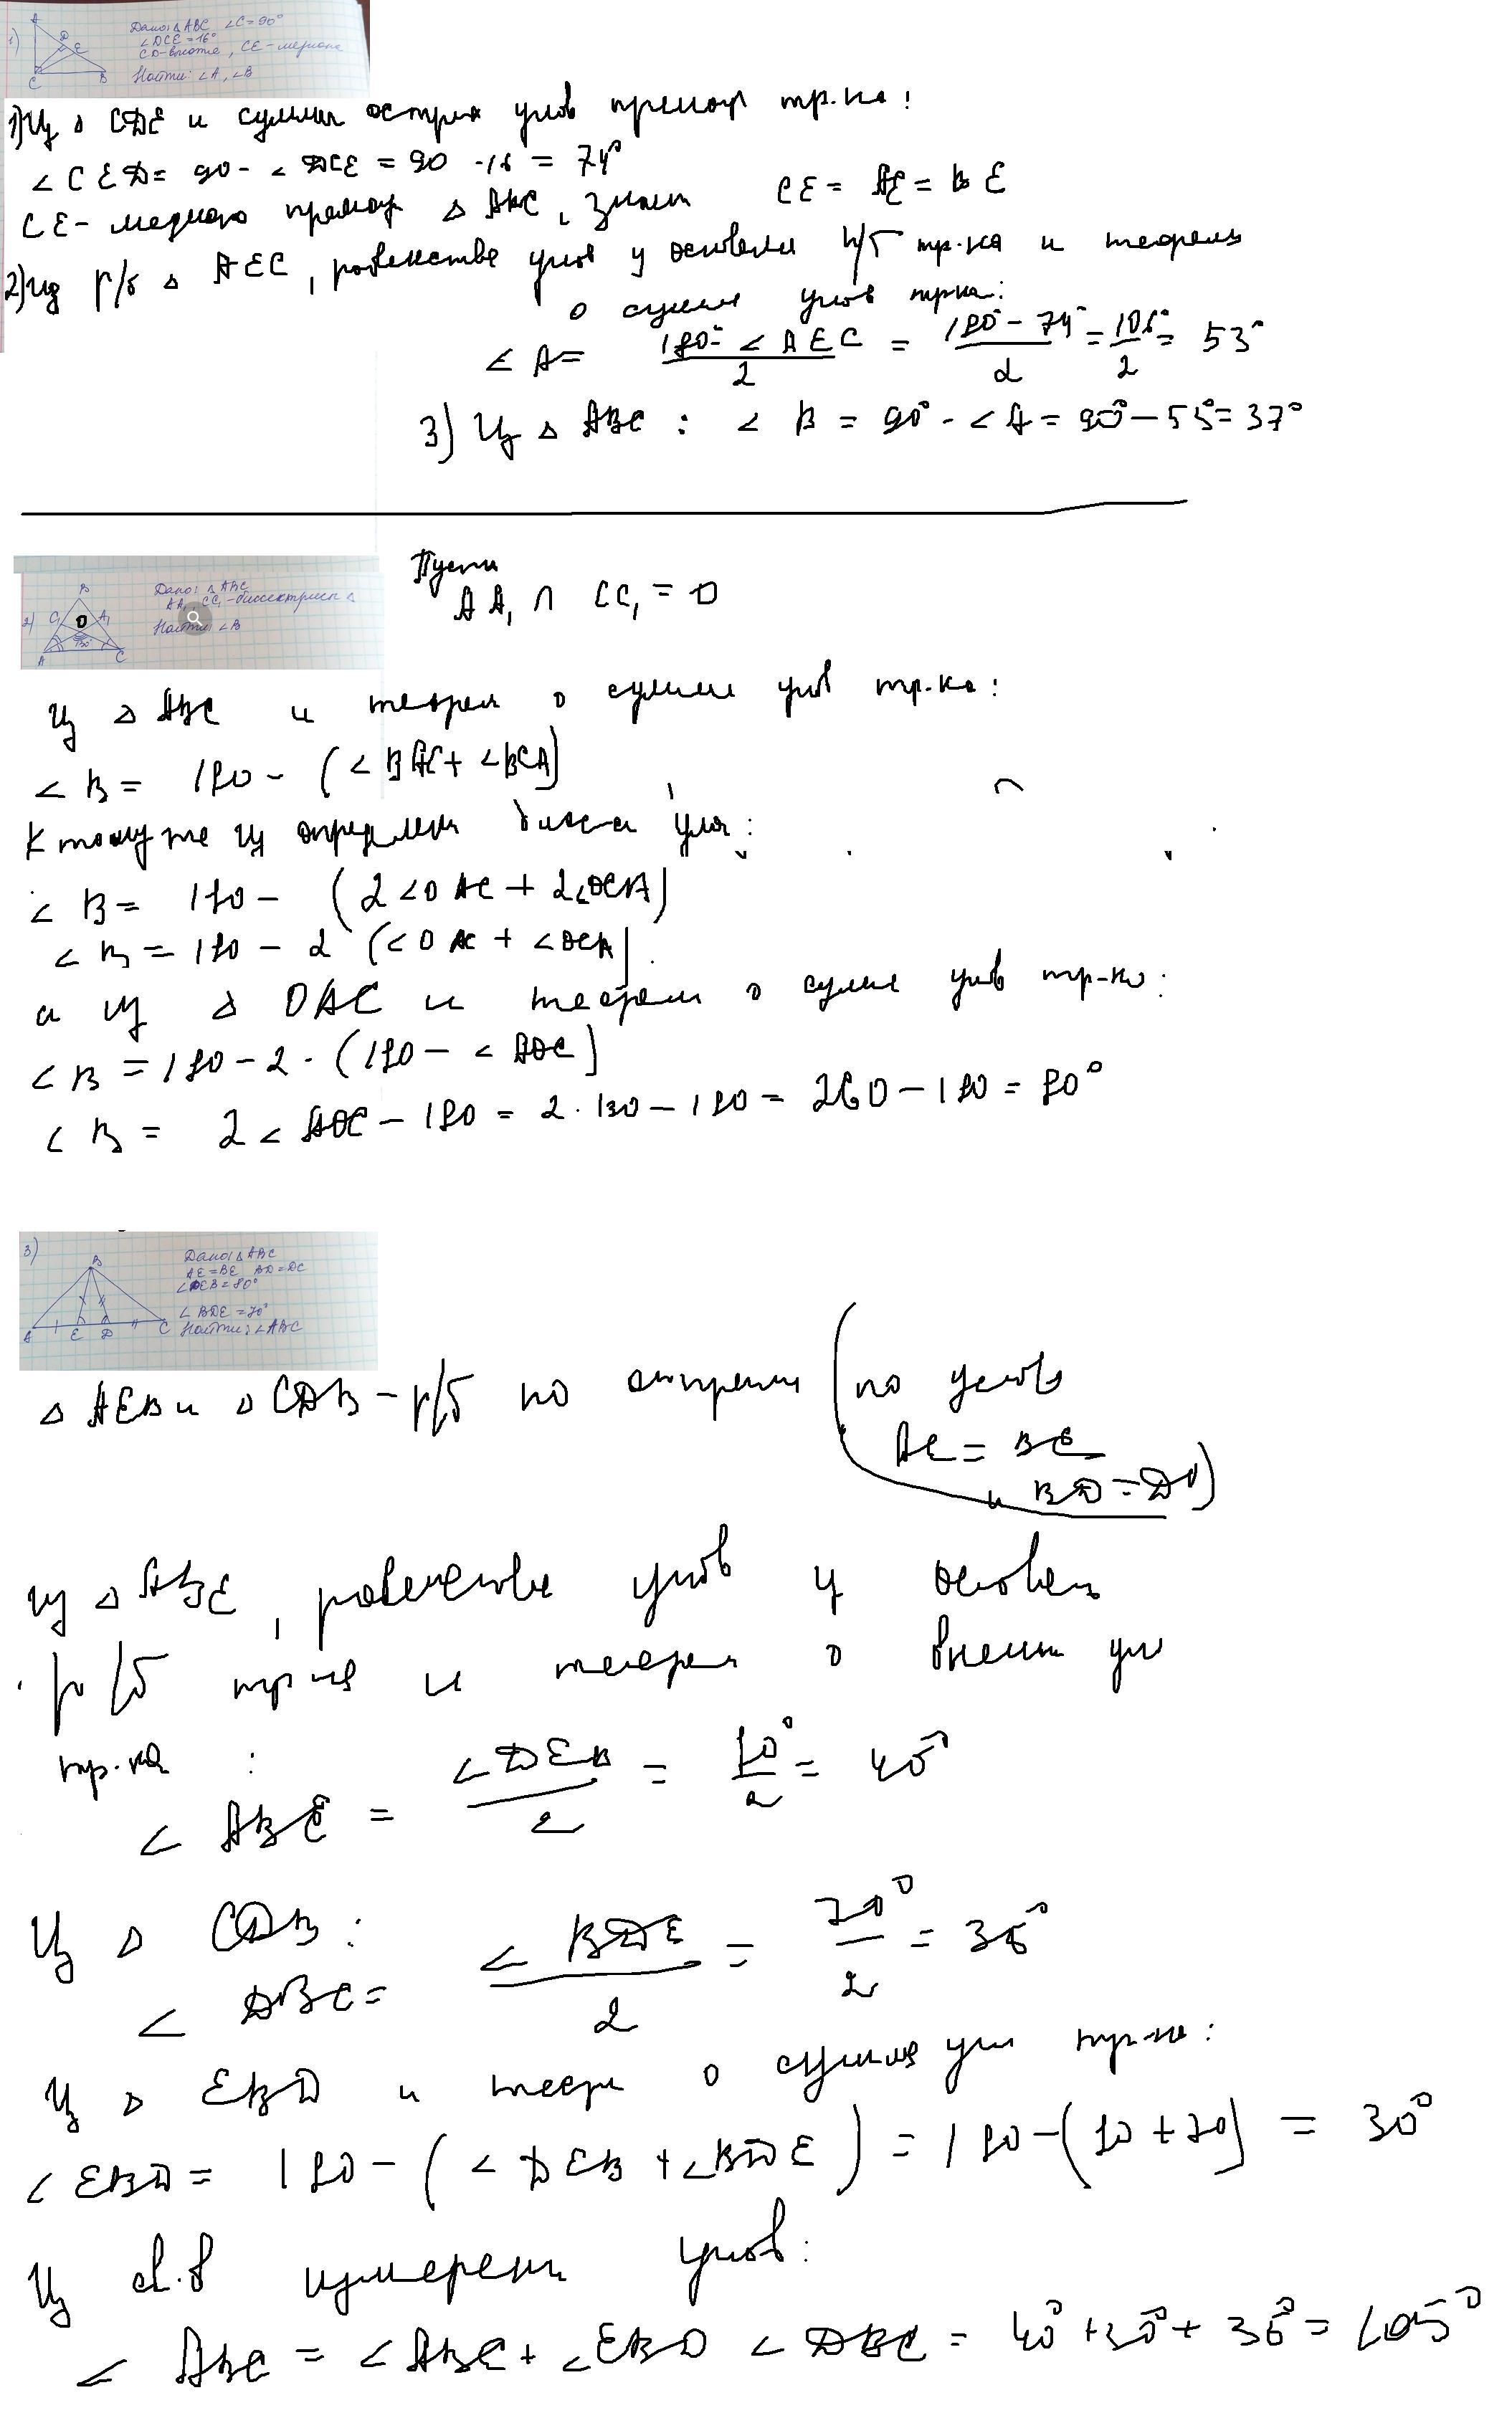 1)
A
D
E
C
B
Дано: △ABC ∠C=90°
∠DCE=16°
CD-высота, CE-медиана
Найти: ∠A, ∠B
1) Из △ CDE и суммы острых углов прямоуг тр-ка:
∠CED = 90 - ∠DCE = 90 - 16 = 74°
CE - медиана прямоуг △ ABC, значит CE = AE = BE
2) Из р/б △ AEC, равенства углов у основания р/б тр-ка и теоремы
о сумме углов тр-ка:
∠A = (180° - ∠AEC)/2 = (180° - 74°)/2 = 106°/2 = 53°
3) Из △ ABC : ∠B = 90° - ∠A = 90° - 53° = 37°
2)
B
C₁
O
A₁
130°
A
C
Дано: △ABC
AA₁, CC₁-биссектрисы △
Найти: ∠B
Пусть
AA₁ ∩ CC₁ = O
Из △ ABC и теоремы о сумме углов тр-ка:
∠B = 180 - (∠BAC + ∠BCA)
К тому же из определения биссы угла:
∠B = 180 - (2∠OAC + 2∠OCA)
∠B = 180 - 2 (∠OAC + ∠OCA)
а из △ OAC и теоремы о сумме углов тр-ка:
∠B = 180 - 2 · (180 - ∠AOC)
∠B = 2∠AOC - 180 = 2·130 - 180 = 260 - 180 = 80°
3)
B
A
E
D
C
Дано: △ABC
AE=BE BD=DC
∠DEB=80°
∠BDE=70°
Найти: ∠ABC
△ AEB и △ CDB - р/б по определению (по условию
AE = BE
и BD = DC)
Из △ ABE, равенства углов у основания
р/б тр-ка и теоремы о внешнем угле
тр-ка :
∠ABE = ∠DEB/2 = 80°/2 = 40°
Из △ CDB :
∠DBC = ∠BDE/2 = 70°/2 = 35°
Из △ EBD и теоремы о сумме углов тр-ка:
∠EBD = 180 - (∠DEB + ∠BDE) = 180 - (80 + 70) = 30°
Из св-в измерения углов:
∠ABC = ∠ABE + ∠EBD ∠DBC = 40° + 30° + 35° = 105°